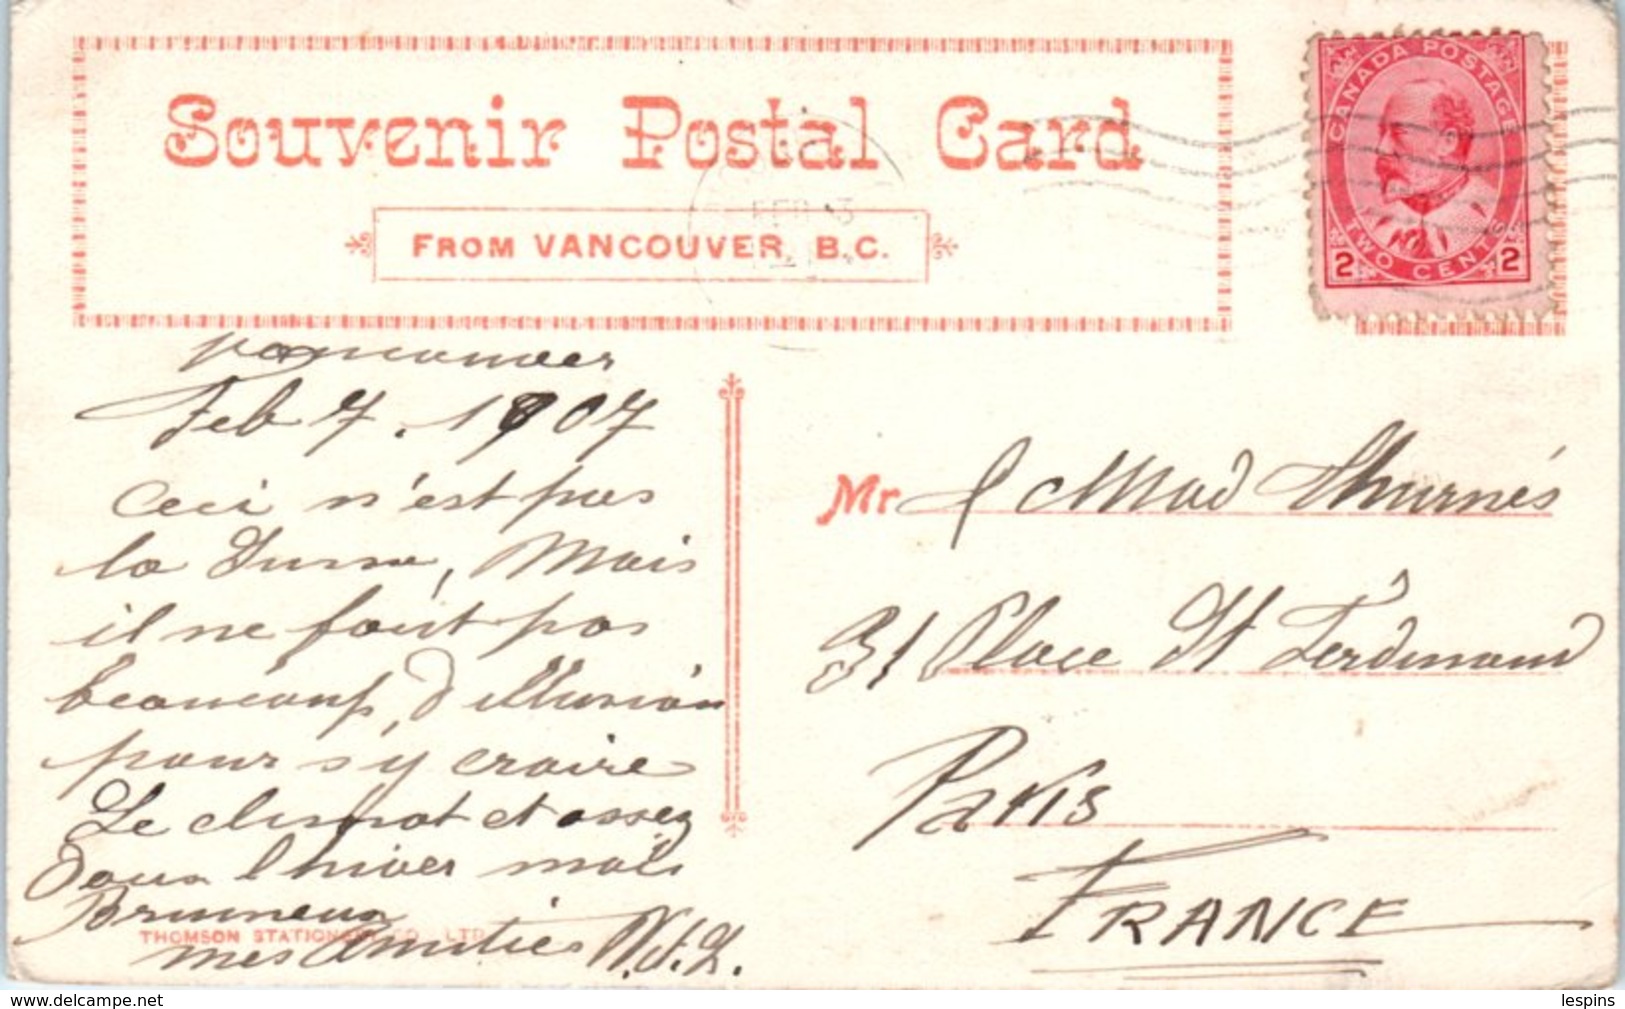 Souvenir Postal Card
FROM VANCOUVER, B.C.
CANADA POSTAGE
TWO CENTS
2 2
FEB 13
Vancouver
Feb 7. 1907
Ceci n'est pas
la Suisse, Mais
il ne faut pas
beaucoup d'illusion
pour s'y croire
Le climat est assez
doux l'hiver mais
Brumeux
THOMSON STATIONERY CO., LTD.
mes Amitiés
Mr & Mad
31 Place St Ferdinand
Paris
FRANCE
delcampe.net
lespins